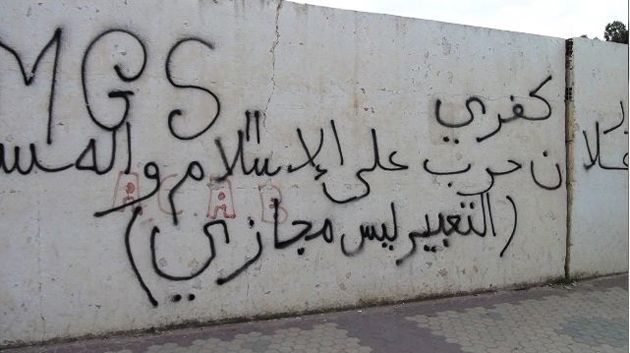 MGS
كفري
علان حرب على الإسلام والمس
A.C.A.B
(التعبير ليس مجازي)